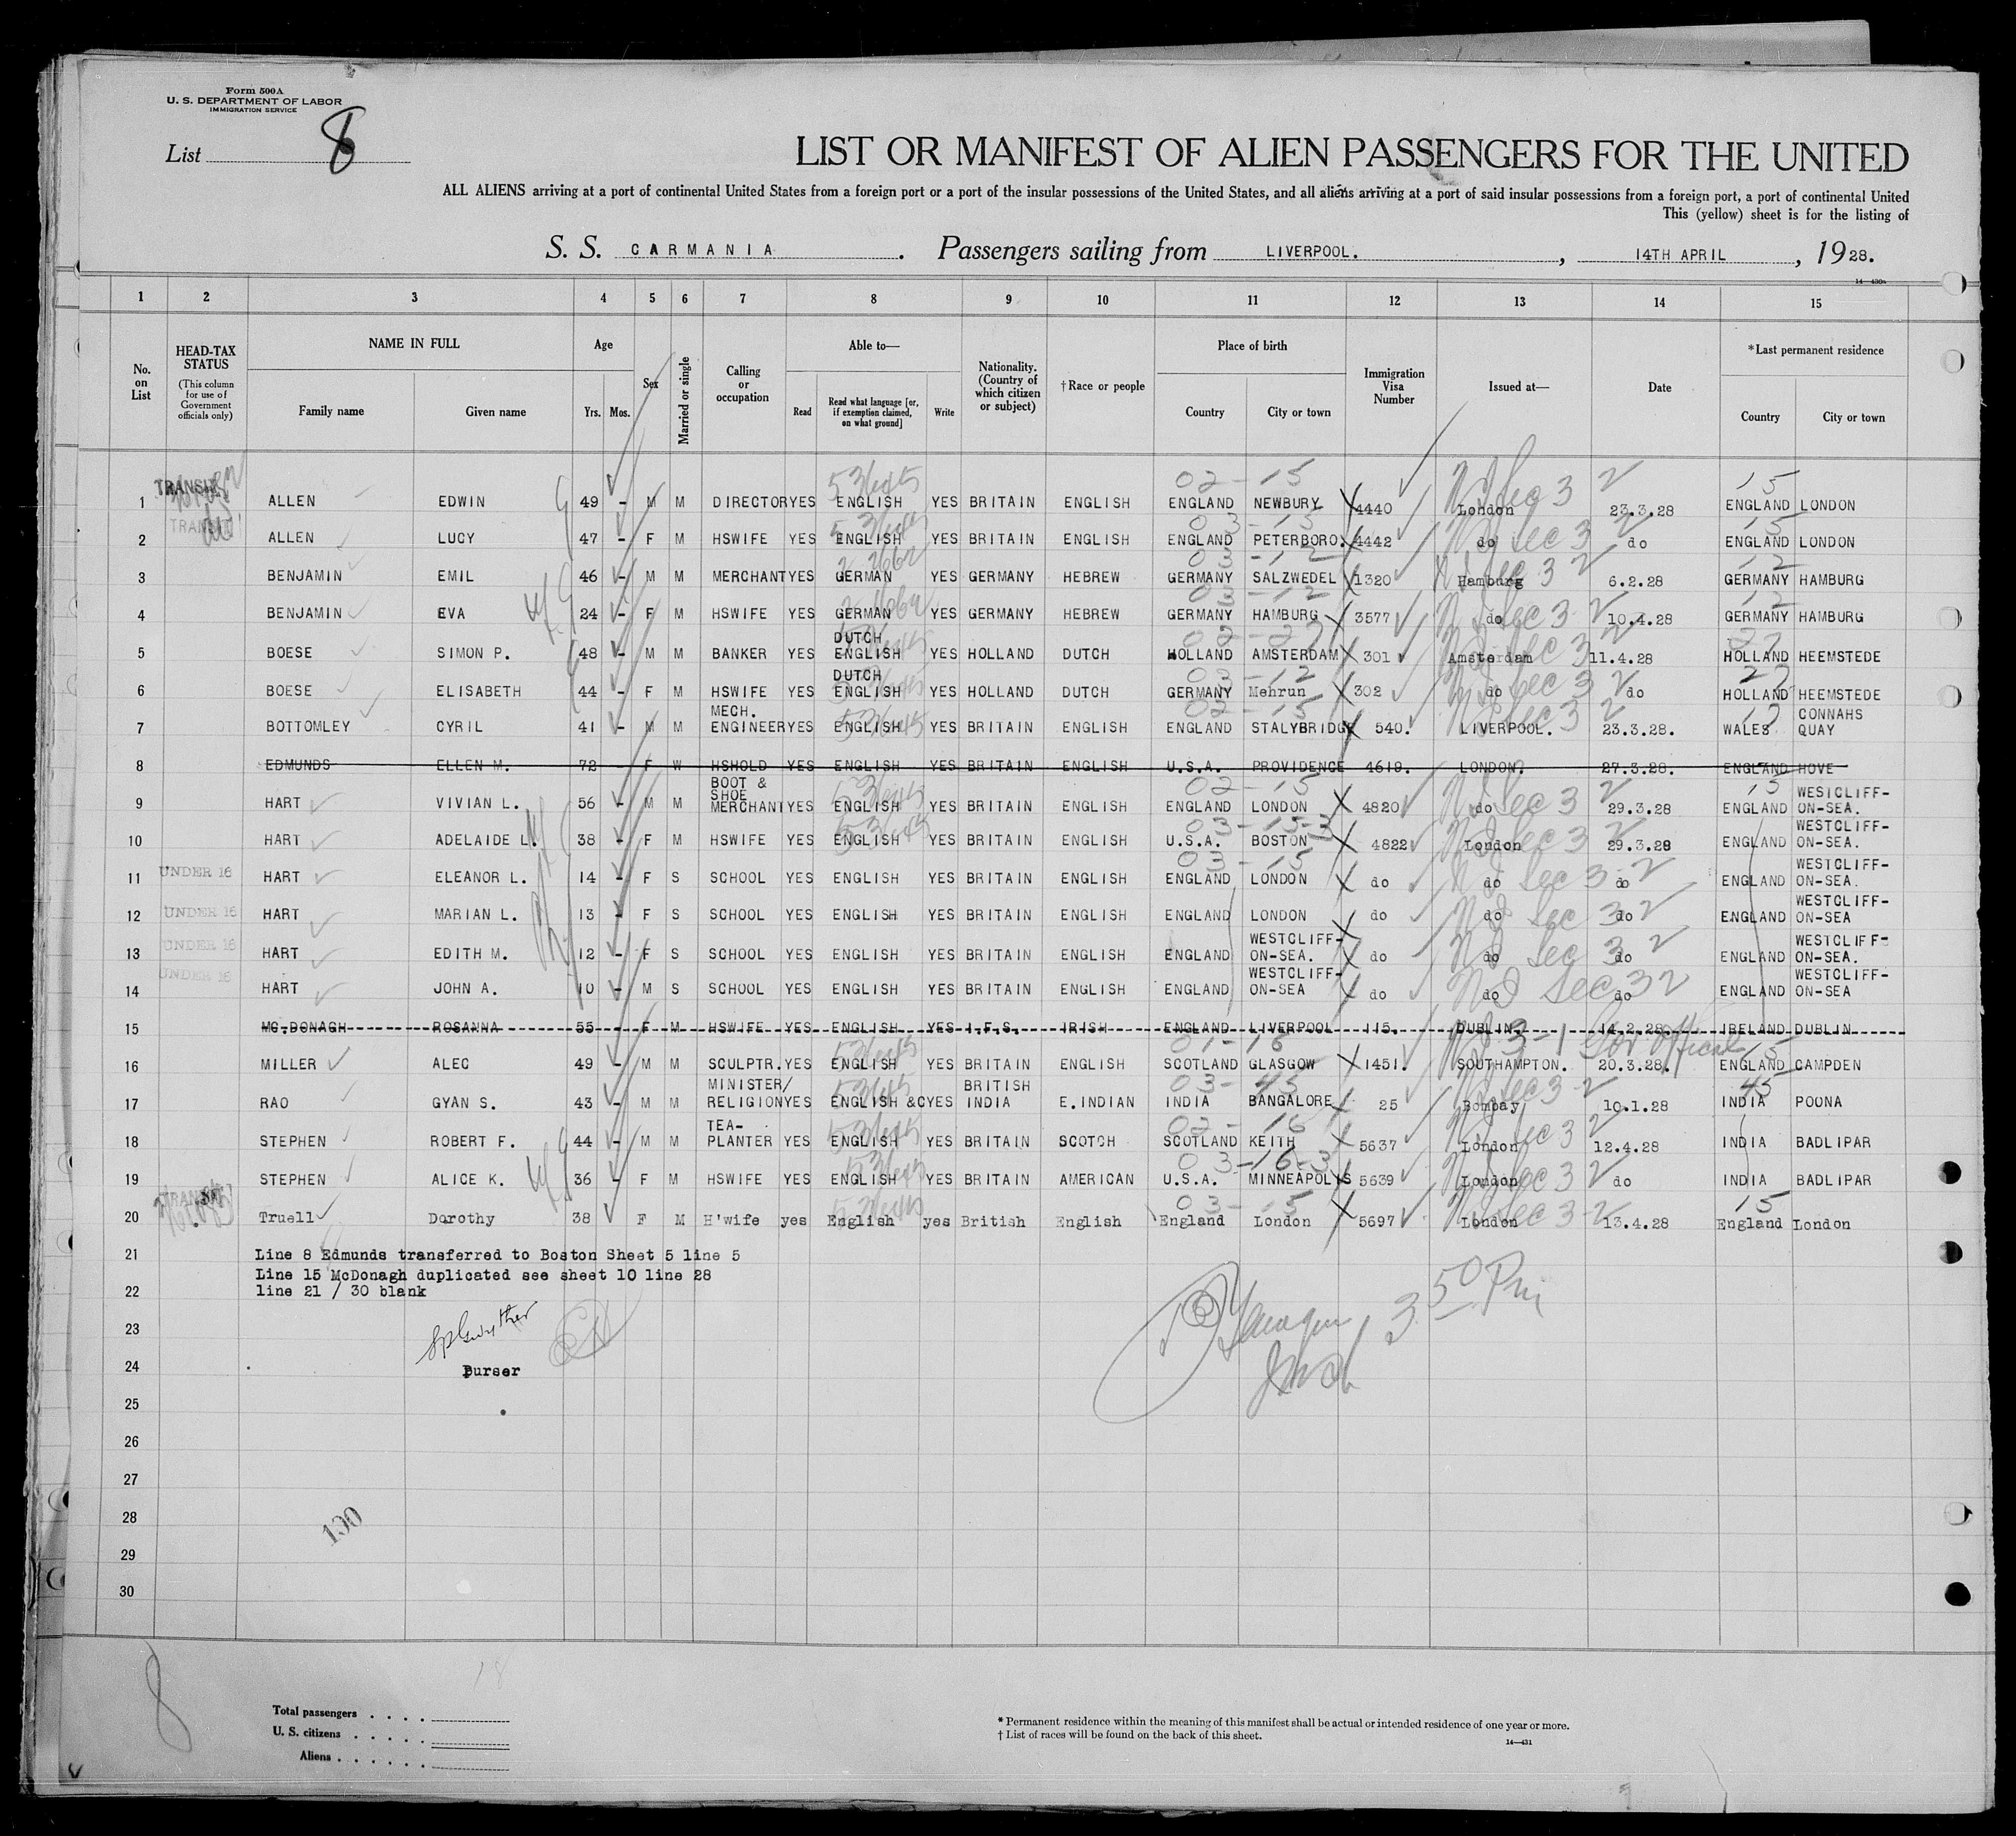 Form 500A
U. S. DEPARTMENT OF LABOR
IMMIGRATION SERVICE
List 8
LIST OR MANIFEST OF ALIEN PASSENGERS FOR THE UNITED
ALL ALIENS arriving at a port of continental United States from a foreign port or a port of the insular possessions of the United States, and all aliens arriving at a port of said insular possessions from a foreign port, a port of continental United
This (yellow) sheet is for the listing of
S. S. CARMANIA. Passengers sailing from LIVERPOOL., 14TH APRIL, 1928.
14—430a
1 2 3 4 5 6 7 8 9 10 11 12 13 14 15
No. on List
HEAD-TAX STATUS
(This column for use of Government officials only)
NAME IN FULL
Family name Given name
Age
Yrs. Mos.
Sex
Married or single
Calling or occupation
Able to—
Read
Read what language [or, if exemption claimed, on what ground]
Write
Nationality. (Country of which citizen or subject)
†Race or people
Place of birth
Country City or town
Immigration Visa Number
Issued at—
Date
*Last permanent residence
Country City or town
1 TRANSIT ALLEN EDWIN 49 - M M DIRECTOR YES ENGLISH YES BRITAIN ENGLISH ENGLAND NEWBURY 4440 London 23.3.28 ENGLAND LONDON
2 TRANSIT ALLEN LUCY 47 - F M HSWIFE YES ENGLISH YES BRITAIN ENGLISH ENGLAND PETERBORO. 4442 do do ENGLAND LONDON
3 BENJAMIN EMIL 46 - M M MERCHANT YES GERMAN YES GERMANY HEBREW GERMANY SALZWEDEL 1320 Hamburg 6.2.28 GERMANY HAMBURG
4 BENJAMIN EVA 24 - F M HSWIFE YES GERMAN YES GERMANY HEBREW GERMANY HAMBURG 3577 do 10.4.28 GERMANY HAMBURG
5 BOESE SIMON P. 48 - M M BANKER YES DUTCH ENGLISH YES HOLLAND DUTCH HOLLAND AMSTERDAM 301 Amsterdam 11.4.28 HOLLAND HEEMSTEDE
6 BOESE ELISABETH 44 - F M HSWIFE YES DUTCH ENGLISH YES HOLLAND DUTCH GERMANY Mehrun 302 do do HOLLAND HEEMSTEDE
7 BOTTOMLEY CYRIL 41 - M M MECH. ENGINEER YES ENGLISH YES BRITAIN ENGLISH ENGLAND STALYBRIDGE 540. LIVERPOOL. 23.3.28. WALES CONNAHS QUAY
8 EDMUNDS ELLEN M. 72 - F W HSHOLD YES ENGLISH YES BRITAIN ENGLISH U.S.A. PROVIDENCE 4619. LONDON. 27.3.28. ENGLAND HOVE
9 HART VIVIAN L. 56 - M M BOOT & SHOE MERCHANT YES ENGLISH YES BRITAIN ENGLISH ENGLAND LONDON 4820 do 29.3.28 ENGLAND WESTCLIFF-ON-SEA.
10 HART ADELAIDE L. 38 - F M HSWIFE YES ENGLISH YES BRITAIN ENGLISH U.S.A. BOSTON 4822 London 29.3.28 ENGLAND WESTCLIFF-ON-SEA.
11 UNDER 16 HART ELEANOR L. 14 - F S SCHOOL YES ENGLISH YES BRITAIN ENGLISH ENGLAND LONDON do do do ENGLAND WESTCLIFF-ON-SEA.
12 UNDER 16 HART MARIAN L. 13 - F S SCHOOL YES ENGLISH YES BRITAIN ENGLISH ENGLAND LONDON do do do ENGLAND WESTCLIFF-ON-SEA
13 UNDER 16 HART EDITH M. 12 - F S SCHOOL YES ENGLISH YES BRITAIN ENGLISH ENGLAND WESTCLIFF-ON-SEA. do do do ENGLAND WESTCLIFF-ON-SEA.
14 UNDER 16 HART JOHN A. 10 - M S SCHOOL YES ENGLISH YES BRITAIN ENGLISH ENGLAND WESTCLIFF-ON-SEA do do do ENGLAND WESTCLIFF-ON-SEA
15 MC.DONAGH ROSANNA 55 F M HSWIFE YES ENGLISH YES I.F.S. IRISH ENGLAND LIVERPOOL 115. DUBLIN. 14.2.28. IRELAND DUBLIN
16 MILLER ALEC 49 - M M SCULPTR. YES ENGLISH YES BRITAIN ENGLISH SCOTLAND GLASGOW 1451. SOUTHAMPTON. 20.3.28. ENGLAND CAMPDEN
17 RAO GYAN S. 43 - M M MINISTER/ RELIGION YES ENGLISH &C YES BRITISH INDIA E.INDIAN INDIA BANGALORE 25 Bombay 10.1.28 INDIA POONA
18 STEPHEN ROBERT F. 44 - M M TEA-PLANTER YES ENGLISH YES BRITAIN SCOTCH SCOTLAND KEITH 5637 London 12.4.28 INDIA BADLIPAR
19 STEPHEN ALICE K. 36 - F M HSWIFE YES ENGLISH YES BRITAIN AMERICAN U.S.A. MINNEAPOLIS 5639 London do INDIA BADLIPAR
20 TRANSIT Truell Dorothy 38 F M H'wife yes English yes British English England London 5697 London 13.4.28 England London
21 Line 8 Edmunds transferred to Boston Sheet 5 line 5
Line 15 McDonagh duplicated see sheet 10 line 28
22 line 21 / 30 blank
23
24 Purser
25
26
27
28
29
30
3 50 Pm
100
8
18
Total passengers
U. S. citizens
Aliens
* Permanent residence within the meaning of this manifest shall be actual or intended residence of one year or more.
† List of races will be found on the back of this sheet.
14—431